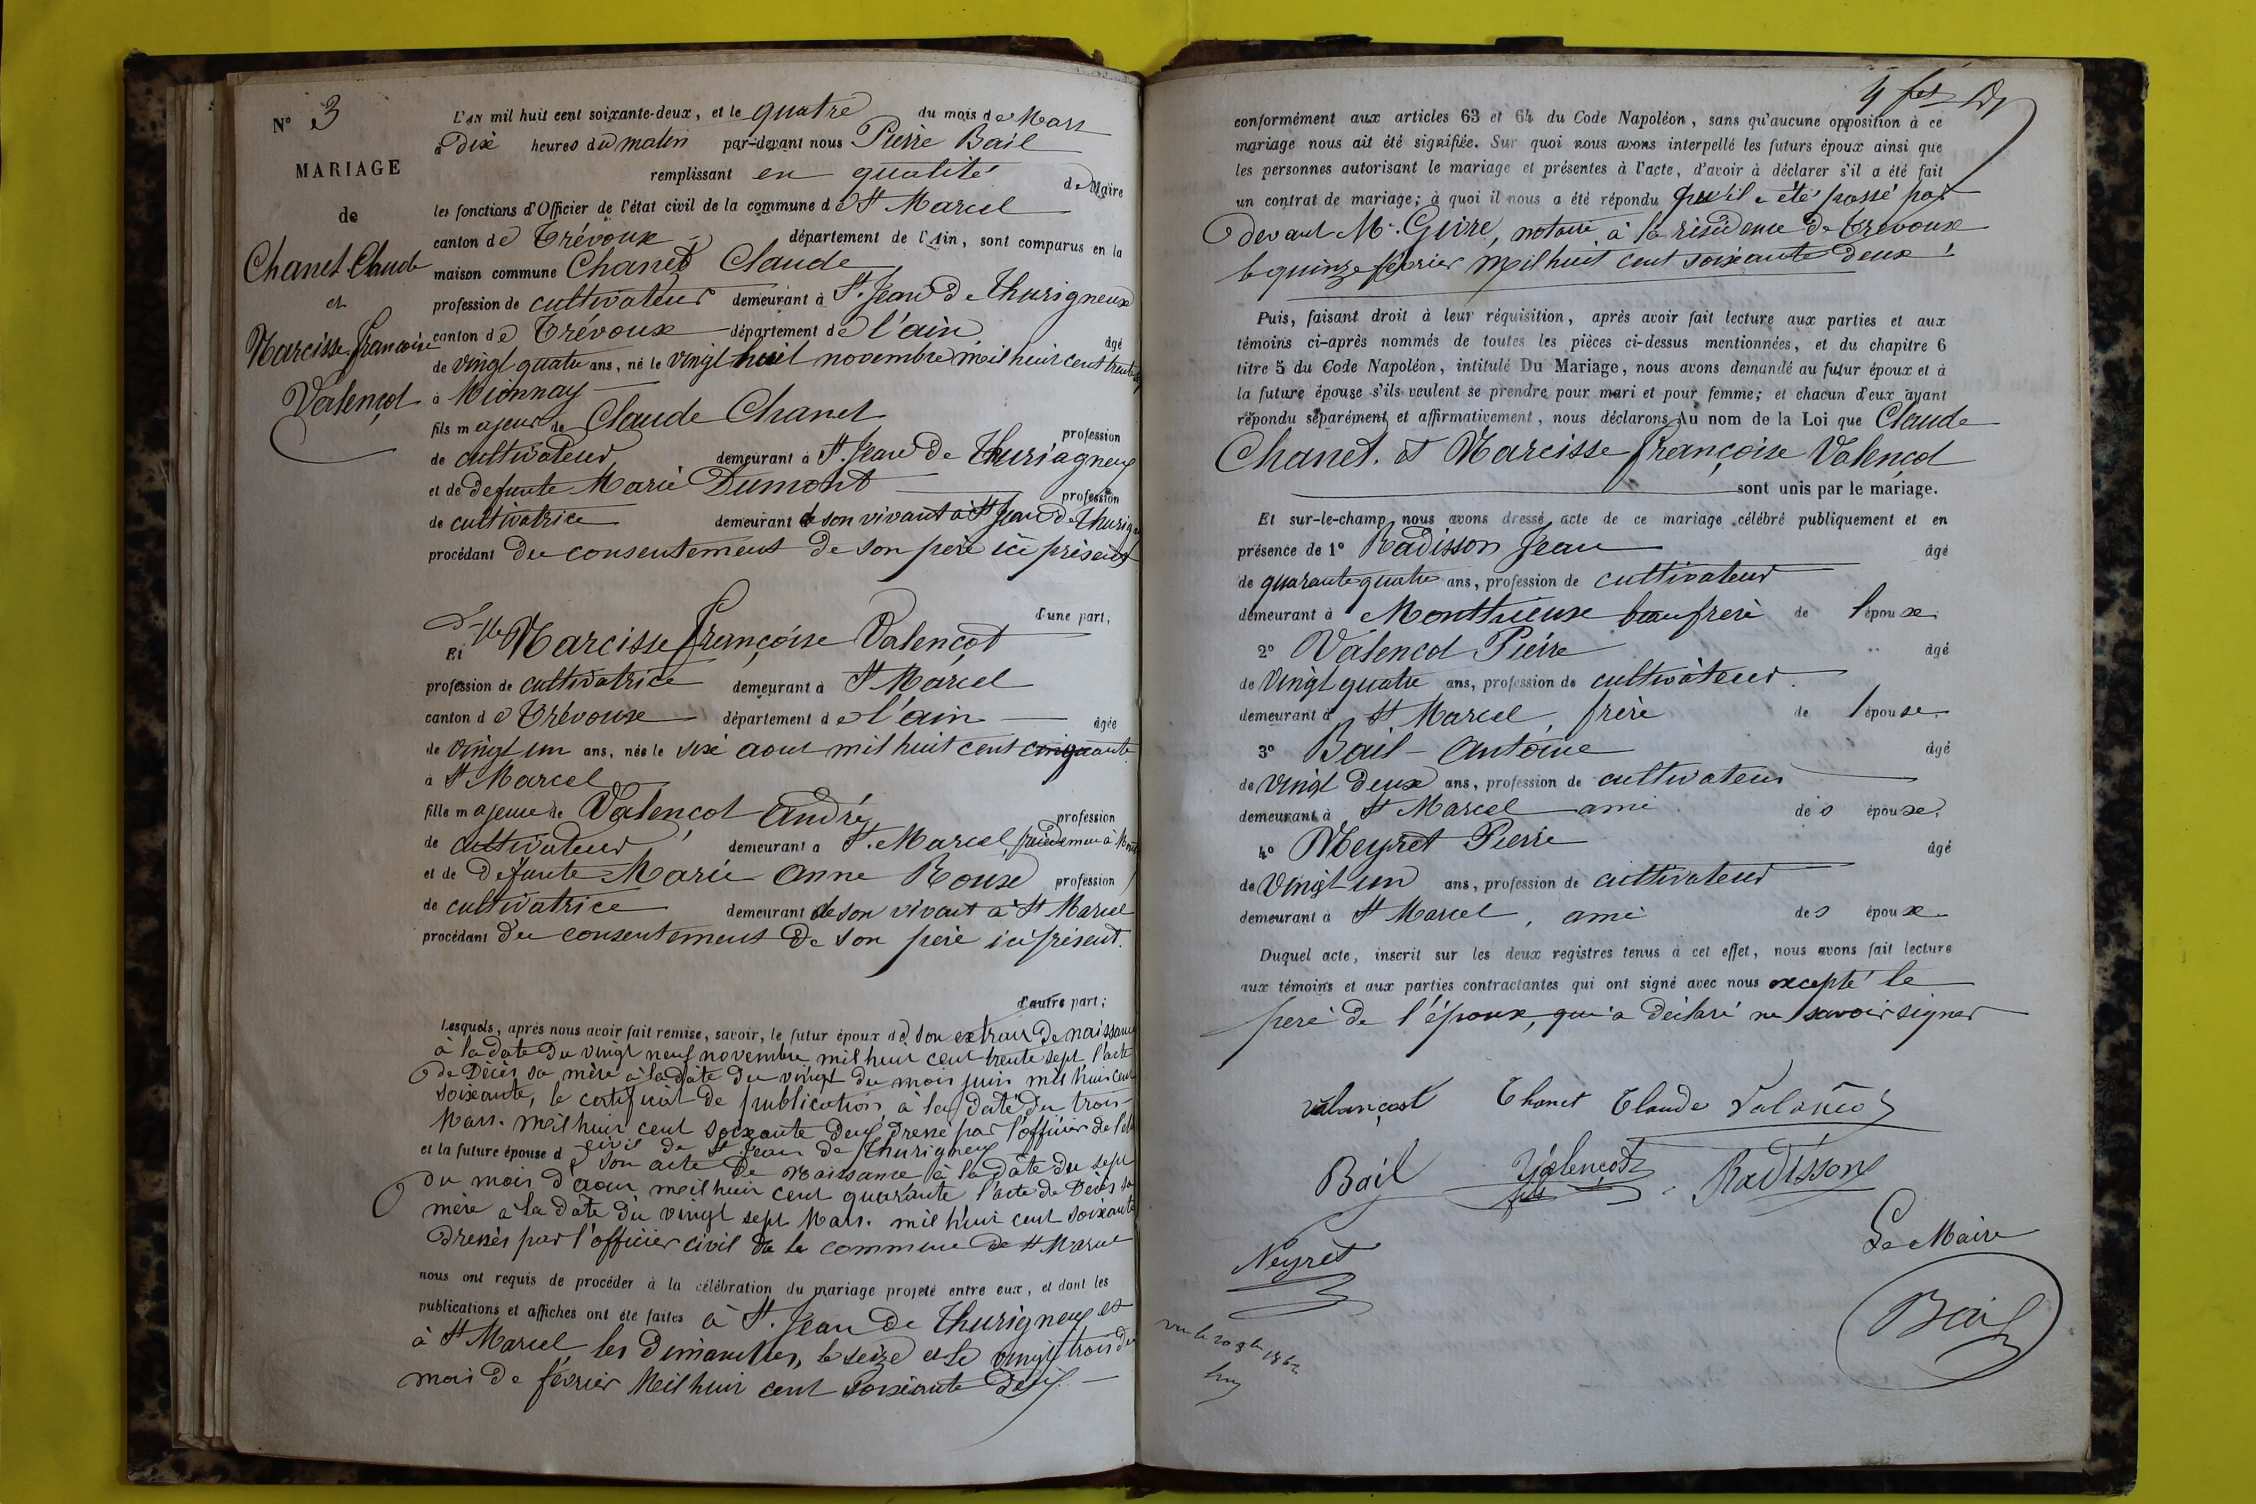 N° 3
MARIAGE
de
Chanet Claude
et
Narcisse françoise
Valençot
L'AN mil huit cent soixante-deux, et le quatre du mois de Mars
à dix heures du matin par-devant nous Pierre Bail
remplissant en qualité de Maire
les fonctions d'Officier de l'état civil de la commune de St Marcel
canton de Trévoux département de l'Ain, sont comparus en la
maison commune Chanet Claude
profession de cultivateur demeurant à St. Jean de Thurigneux
canton de Trévoux département de l'ain âgé
de vingt quatre ans, né le vingt huit novembre mil huit cent trente
à Mionnay
fils majeur de Claude Chanet profession
de cultivateur demeurant à St. Jean de Thuriagneux
et de defunte Marie Dumont profession
de cultivatrice demeurant de son vivant à St Jean de Thurig
procédant du consentement de son père ici présent
d'une part;
Et Dlle Narcisse françoise Valençot
profession de cultivatrice demeurant à St Marcel
canton de Trévoux département de l'ain âgée
de vingt un ans, née le six aout mil huit cent cinquante
à St Marcel
fille majeure de Valençot André profession
de cultivateur demeurant à St. Marcel,
et de défunte Marie Anne Roux profession
de cultivatrice demeurant de son vivant à St Marcel
procédant du consentement de son père ici présent.
d'autre part;
Lesquels, après nous avoir fait remise, savoir, le futur époux de son extrait de naissance
à la date du vingt neuf novembre mil huit cent trente sept l'acte
de Décès sa mère à la date du vingt du mois juin mil huit cent
soixante, le certificat de publication à la date du trois
Mars. mil huit cent soixante deux dressé par l'officier de l'état
civil de St Jean de Thurigneux
et la future épouse de son acte de naissance à la date du sept
du mois d'aout mil huit cent quarante l'acte de Décès sa
mère à la date du vingt sept Mars. mil huit cent soixante
dressés par l'officier civil de la commune de St Marcel
nous ont requis de procéder à la célébration du mariage projeté entre eux, et dont les
publications et affiches ont été faites à St. Jean de Thurigneux et
à St Marcel les dimanches, le seize et le vingt trois du
mois de février Mil huit cent soixante deux.
conformément aux articles 63 et 64 du Code Napoléon, sans qu'aucune opposition à ce
mariage nous ait été signifiée. Sur quoi nous avons interpellé les futurs époux ainsi que
les personnes autorisant le mariage et présentes à l'acte, d'avoir à déclarer s'il a été fait
un contrat de mariage; à quoi il nous a été répondu qu'il a été passé par
devant Me. Givre, notaire à la résidence de Trevoux
le quinze février Mil huit cent soixante deux !
Puis, faisant droit à leur réquisition, après avoir fait lecture aux parties et aux
témoins ci-après nommés de toutes les pièces ci-dessus mentionnées, et du chapitre 6
titre 5 du Code Napoléon, intitulé Du Mariage, nous avons demandé au futur époux et à
la future épouse s'ils veulent se prendre pour mari et pour femme; et chacun d'eux ayant
répondu séparément et affirmativement, nous déclarons Au nom de la Loi que Claude
Chanet. et Narcisse françoise Valençot
sont unis par le mariage.
Et sur-le-champ nous avons dressé acte de ce mariage célébré publiquement et en
présence de 1° Radisson Jean âgé
de quarante quatre ans, profession de cultivateur
demeurant à Monthieux beaufrère de l'épouse.
2° Valencot Pierre âgé
de vingt quatre ans, profession de cultivateur.
demeurant à St Marcel, frère de l'épouse.
3° Bail Antoine âgé
de vingt deux ans, profession de cultivateur
demeurant à St Marcel ami des époux.
4° Neyret Pierre âgé
de vingt un ans, profession de cultivateur
demeurant à St Marcel, ami des époux.
Duquel acte, inscrit sur les deux registres tenus à cet effet, nous avons fait lecture
aux témoins et aux parties contractantes qui ont signé avec nous excepté le
père de l'époux, qui a déclaré ne savoir signer
Valançost Chanet Claude Valanco
Bail Valençot fils Radisson
Neyret
Le Maire
Bail